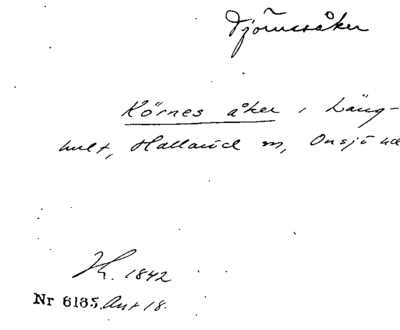 Djörnsåker
Körnes åker i Läng-
hult, Halland m, Onsjö
H. 1842
Nr 6185 Ant 18.